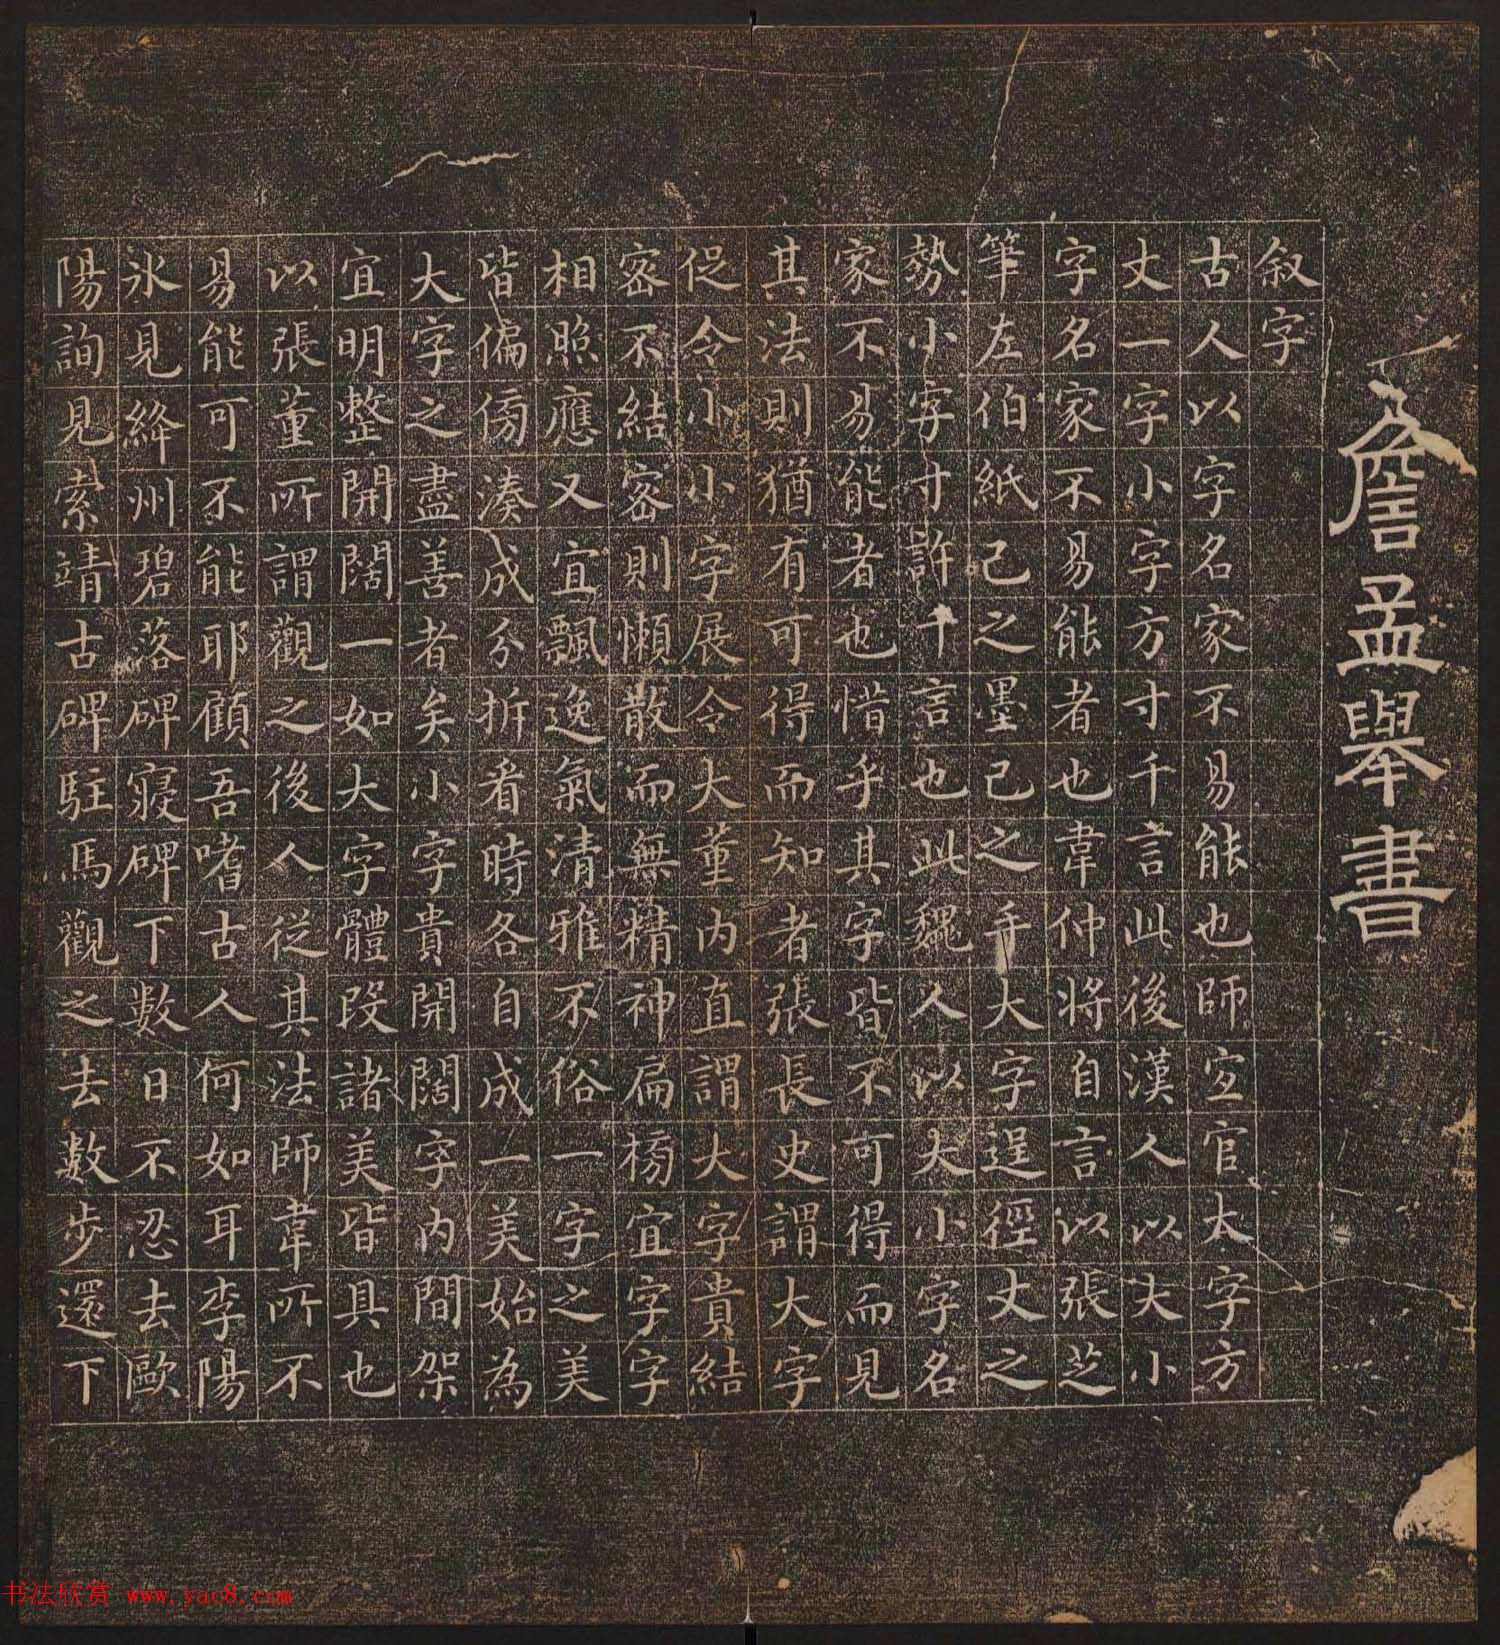 詹孟舉書
叙字
古人以字名家不易能也師宜官大字方
丈一字小字方寸千言此後漢人以大小
字名家不易能者也韋仲將自言以張芝
筆左伯紙己之墨己之手大字逞徑丈之
勢小字寸許千言也此魏人以大小字名
家不易能者也惜乎其字皆不可得而見
其法則猶有可得而知者張長史謂大字
促令小小字展令大董内直謂大字貴結
密不結密則懶散而無精神扁榜宜字字
相照應又宜飄逸氣清雅不俗一字之美
皆偏傍湊成分拆看時各自成一美始為
大字之盡善者矣小字貴開闊字内間架
宜明整開闊一如大字體段諸美皆具也
以張董所謂觀之後人從其法師韋所不
易能可不能耶顧吾嗜古人何如耳李陽
氷見絳州碧落碑寢碑下數日不忍去歐
陽詢見索靖古碑駐馬觀之去數步還下
书法欣赏 www.yac8.com